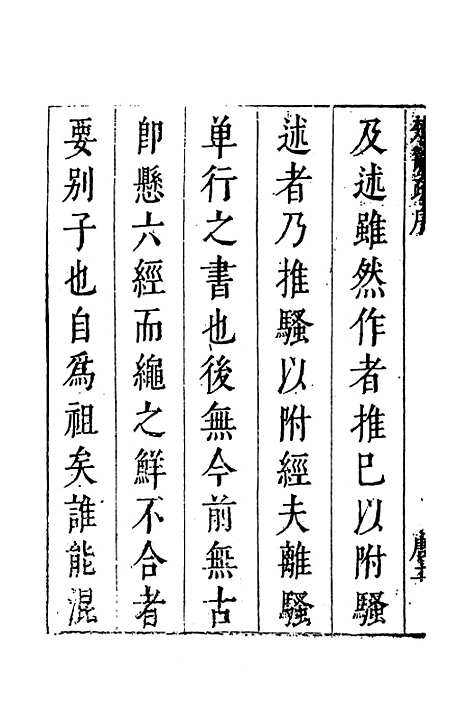 及述雖然作者推已以附騷
述者乃推騷以附經夫離騷
单行之書也後無今前無古
卽懸六經而繩之鮮不合者
要别子也自爲祖矣誰能混